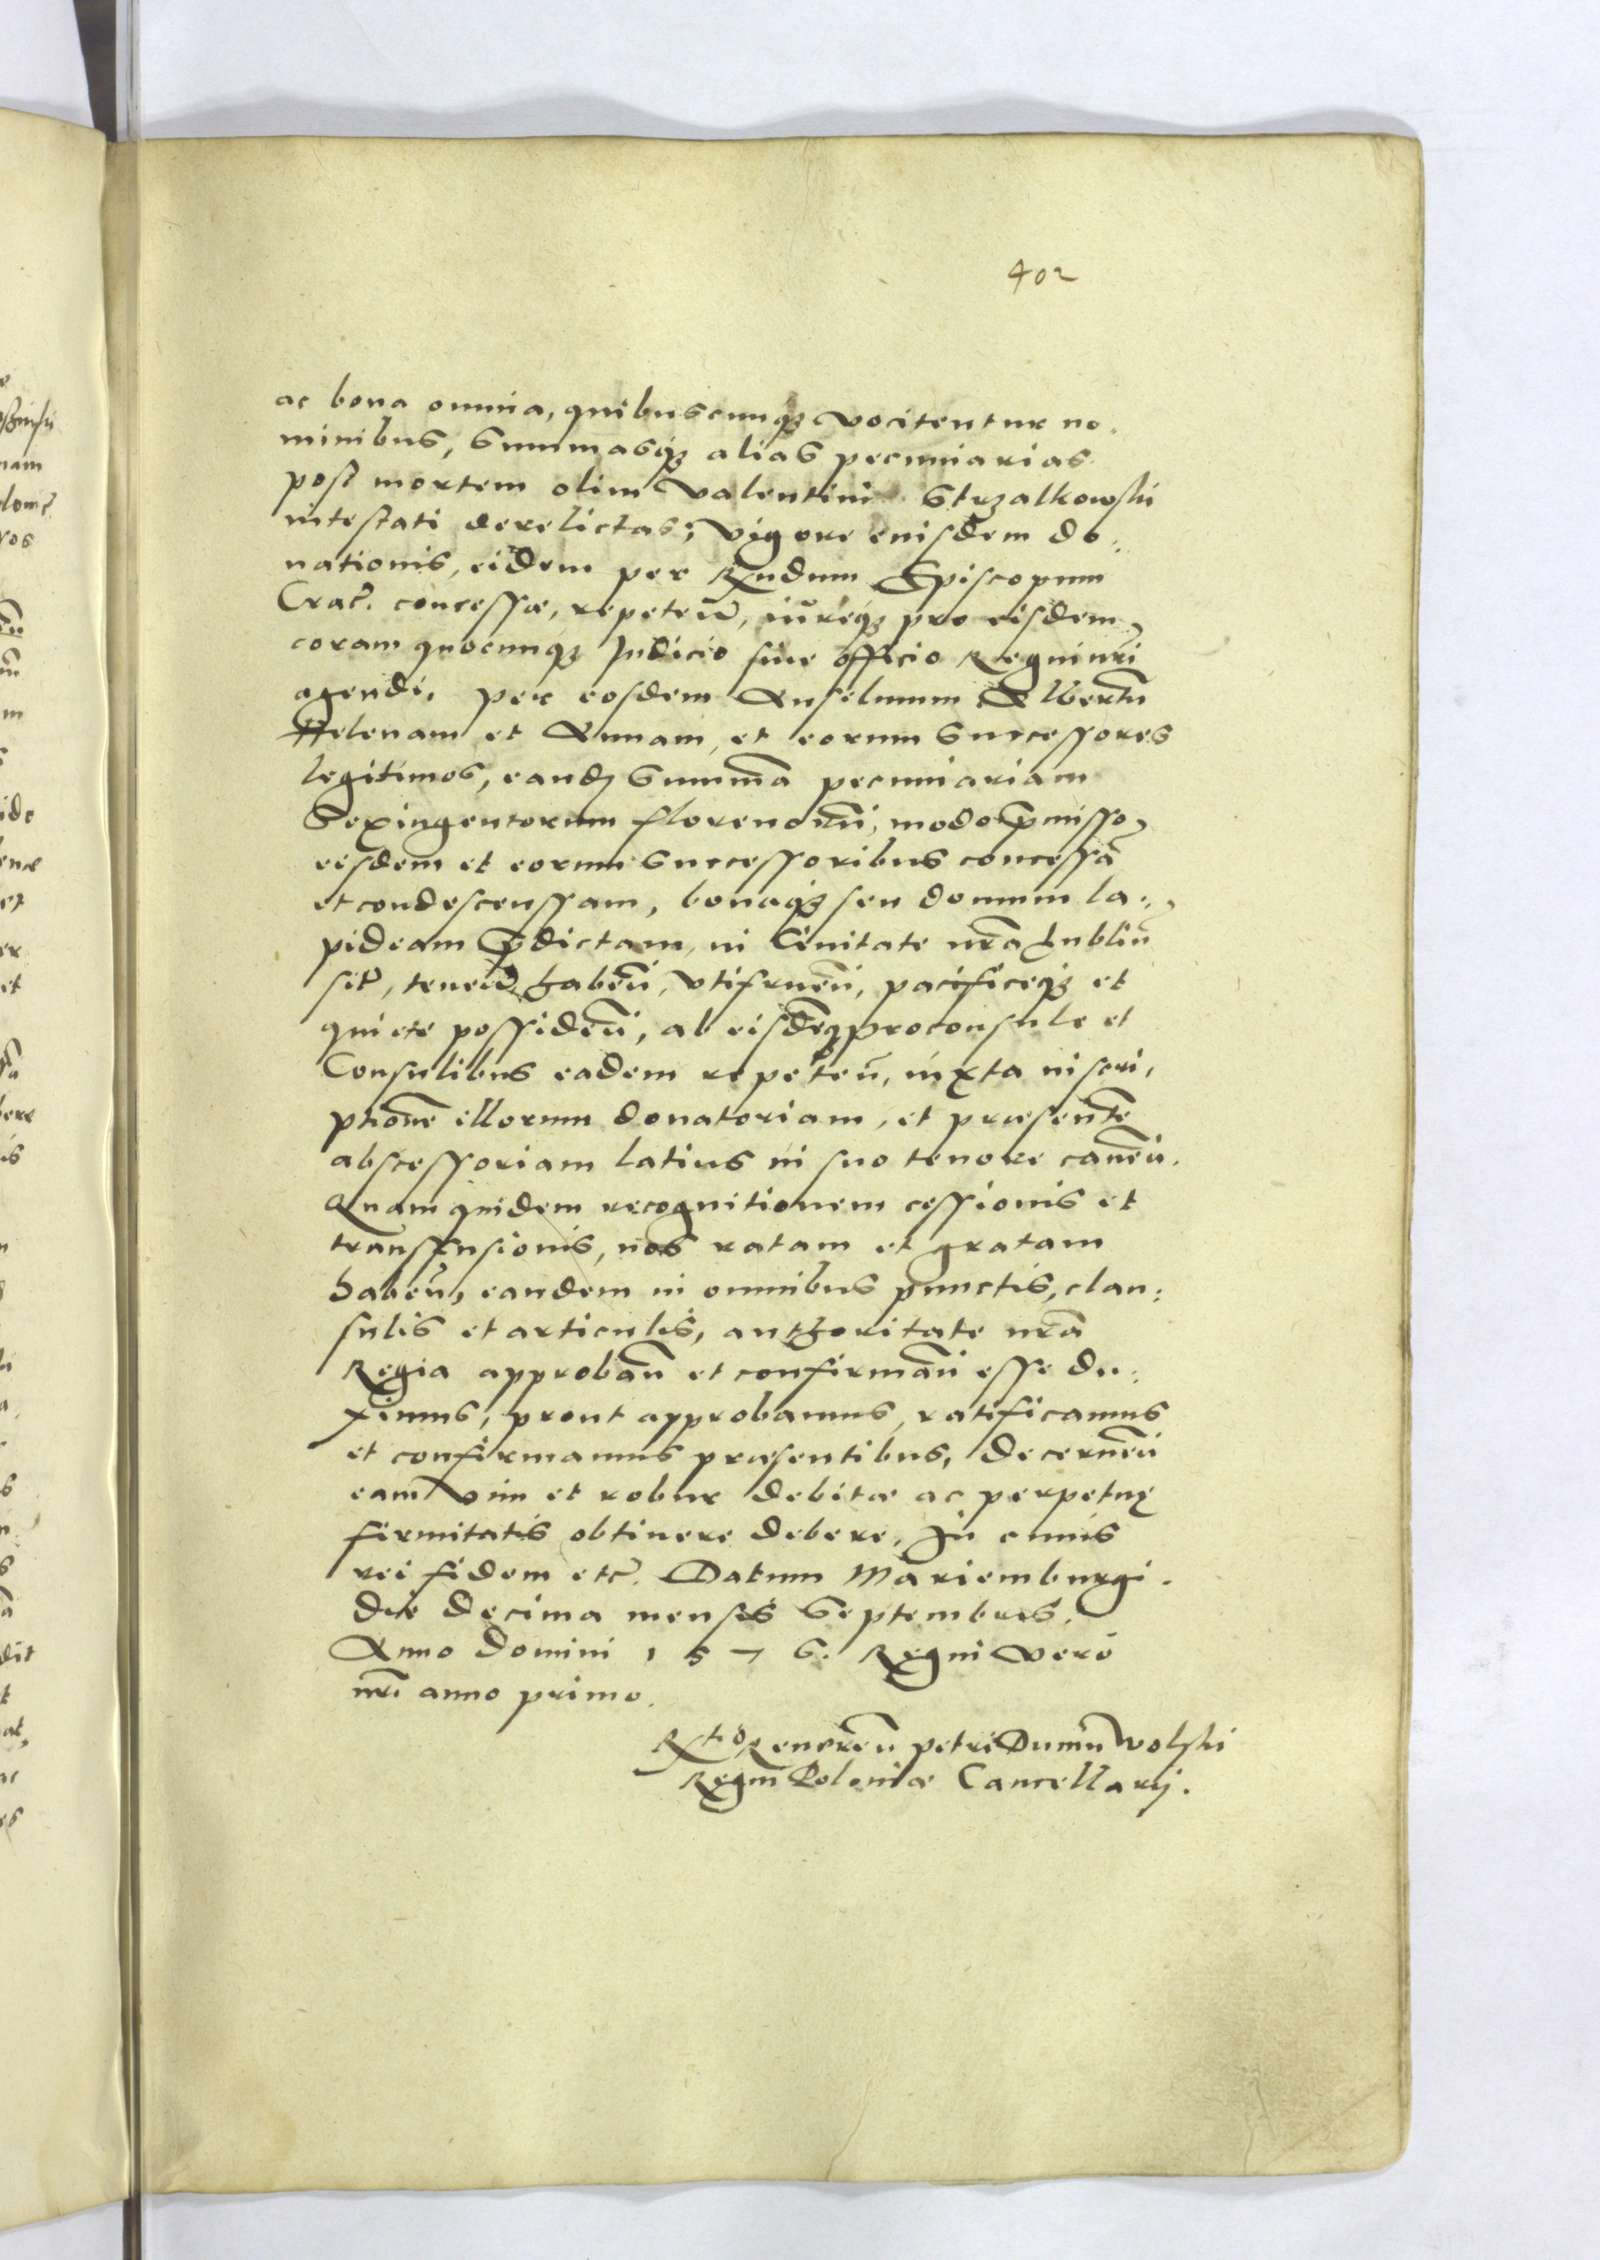 402
ac bona omnia, quibuscumq₃ vocitentur no.
minibus, Summasq₃ alias pecuniarias
post mortem olim Valentini Strzalkowski
intestati derelictas; Vigore euisdem do:
nationis, eidem per Rndum Episcopum
Crac̃. concessæ, repeteñ, iureq₃ pro eisdem
coram quocunq₃ Judicio siue officio Regni nr̃i
agendi, per eosdem Anselmum Albertũ
Helenam et Annam, et eorum Successores
legitimos, eandẽ Summã pecuniariam
Sexingentorum florenorũ, modo p̃misso
eisdem et eorum Successoribus concessã
et condescenssam, bonaq₃ seu domum la:
pideam p̃dictam, in Ciuitate nr̃a Lubliñ
sit̃, teneñ, habeñ, vtifrueñ, pacificeq₃ et
quiete possideñ, ab eisdẽq₃ proconsule et
Consulibus eadem repeteñ, iuxta inscri,
ptionẽ illorum donatoriam, et præsentẽ
abscessoriam latius in suo tenore caueñ.
Quam quidem recognitionem cessionis et
transfusionis, nos ratam et gratam
habeñ, eandem in omnibus punctis, clau:
sulis et articulis, authoritate nr̃a
Regia approbañ et confirmañ esse du:
ximus, prout approbamus, ratificamus
et confirmamus præsentibus, decerneñ
eam vim et robur debitæ ac perpetuę
firmitatis obtinere debere, In cuius
rei fidem etc̃. Datum Mariemburgi.
die decima mensis Septembris.
Anno Domini 1576. Regni vero
nr̃i anno primo.
Rtio Reuereñ petri Dunin Wolski
Regni Poloniæ Cancellarij.